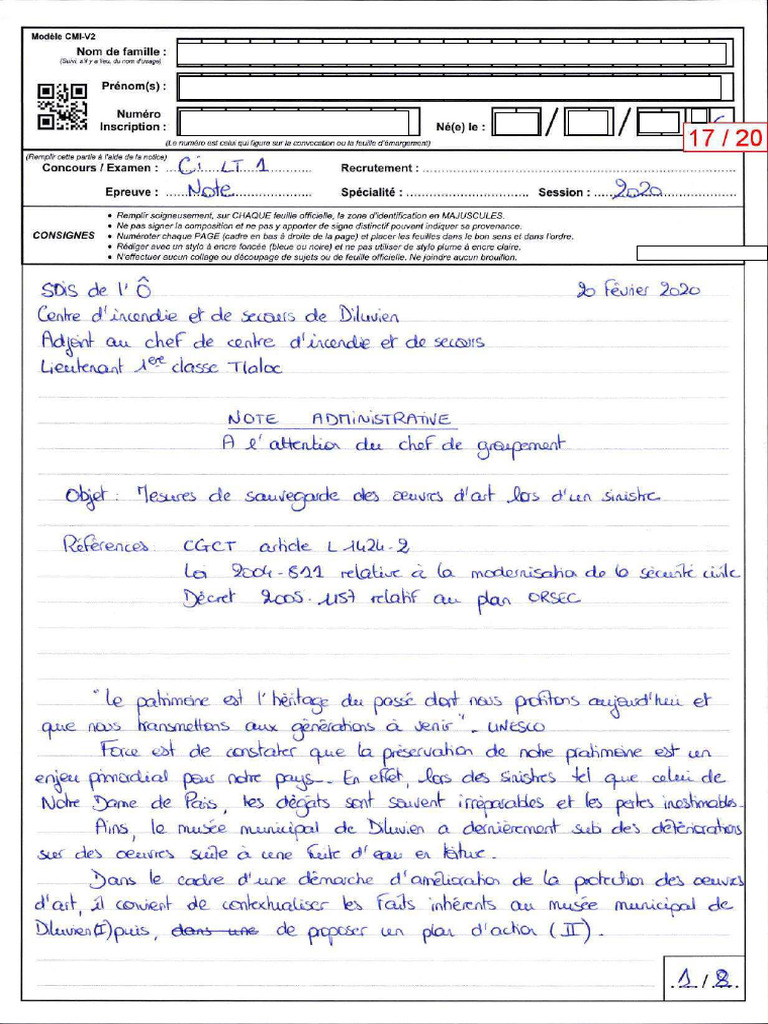 Modèle CMI-V2
Nom de famille :
(Suivi, s'il y a lieu, du nom d'usage)
Prénom(s) :
Numéro
Inscription :
Né(e) le : / /
17 / 20
(Le numéro est celui qui figure sur la convocation ou la feuille d'émargement)
(Remplir cette partie à l'aide de la notice)
Concours / Examen : Ci LT 1 Recrutement :
Epreuve : Note Spécialité : Session : 2020
CONSIGNES
• Remplir soigneusement, sur CHAQUE feuille officielle, la zone d'identification en MAJUSCULES.
• Ne pas signer la composition et ne pas y apporter de signe distinctif pouvant indiquer sa provenance.
• Numéroter chaque PAGE (cadre en bas à droite de la page) et placer les feuilles dans le bon sens et dans l'ordre.
• Rédiger avec un stylo à encre foncée (bleue ou noire) et ne pas utiliser de stylo plume à encre claire.
• N'effectuer aucun collage ou découpage de sujets ou de feuille officielle. Ne joindre aucun brouillon.
SDIS de l'Ô 20 Février 2020
Centre d'incendie et de secours de Diluvien
Adjoint au chef de centre d'incendie et de secours
Lieutenant 1ere classe Tlaloc
NOTE ADMINISTRATIVE
A l'attention du chef de groupement
Objet : Mesures de sauvegarde des oeuvres d'art lors d'un sinistre
Références : CGCT article L 1424-2
Loi 2004-811 relative à la modernisation de la sécurité civile
Décret 2005-1157 relatif au plan ORSEC
"Le patrimoine est l'héritage du passé dont nous profitons aujourd'hui et
que nous transmettons aux générations à venir". UNESCO
Force est de constater que la préservation de notre pratimoine est un
enjeu primordial pour notre pays. En effet, lors des sinistres tel que celui de
Notre Dame de Paris, les dégâts sont souvent irréparables et les pertes inestimables.
Ains, le musée municipal de Diluvien a dernièrement subi des détériorations
sur des oeuvres suite à une fuite d'eau en toiture.
Dans le cadre d'une démarche d'amélioration de la protection des oeuvres
d'art, il convient de contextualiser les faits inhérents au musée municipal de
Diluvien (I) puis, dans une de proposer un plan d'action (II).
1 / 8